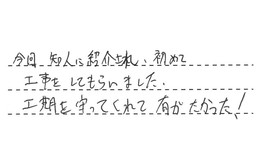 今回、知人に紹介され、初めて
工事をしてもらいました。
工期を守ってくれて有がたかった!